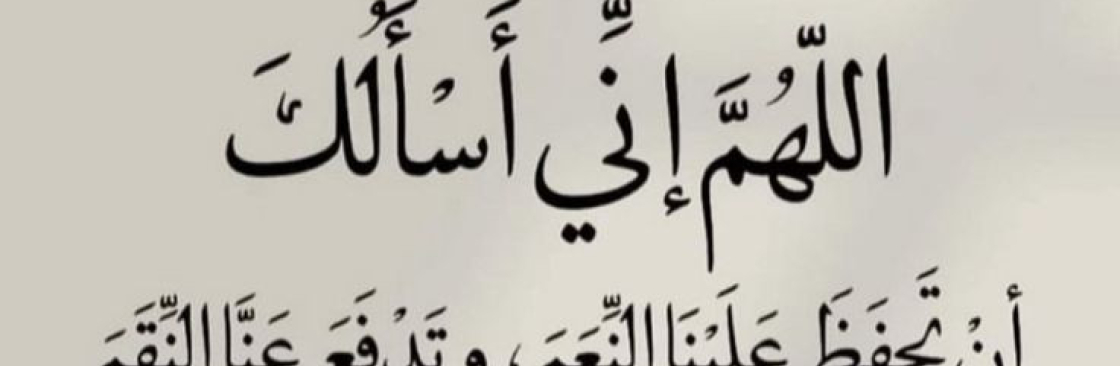 اللَّهُمَّ إِنِّي أَسْأَلُكَ
أَنْ تَحْفَظَ عَلَيْنَا النِّعَمَ، وَتَدْفَعَ عَنَّا النِّقَمَ